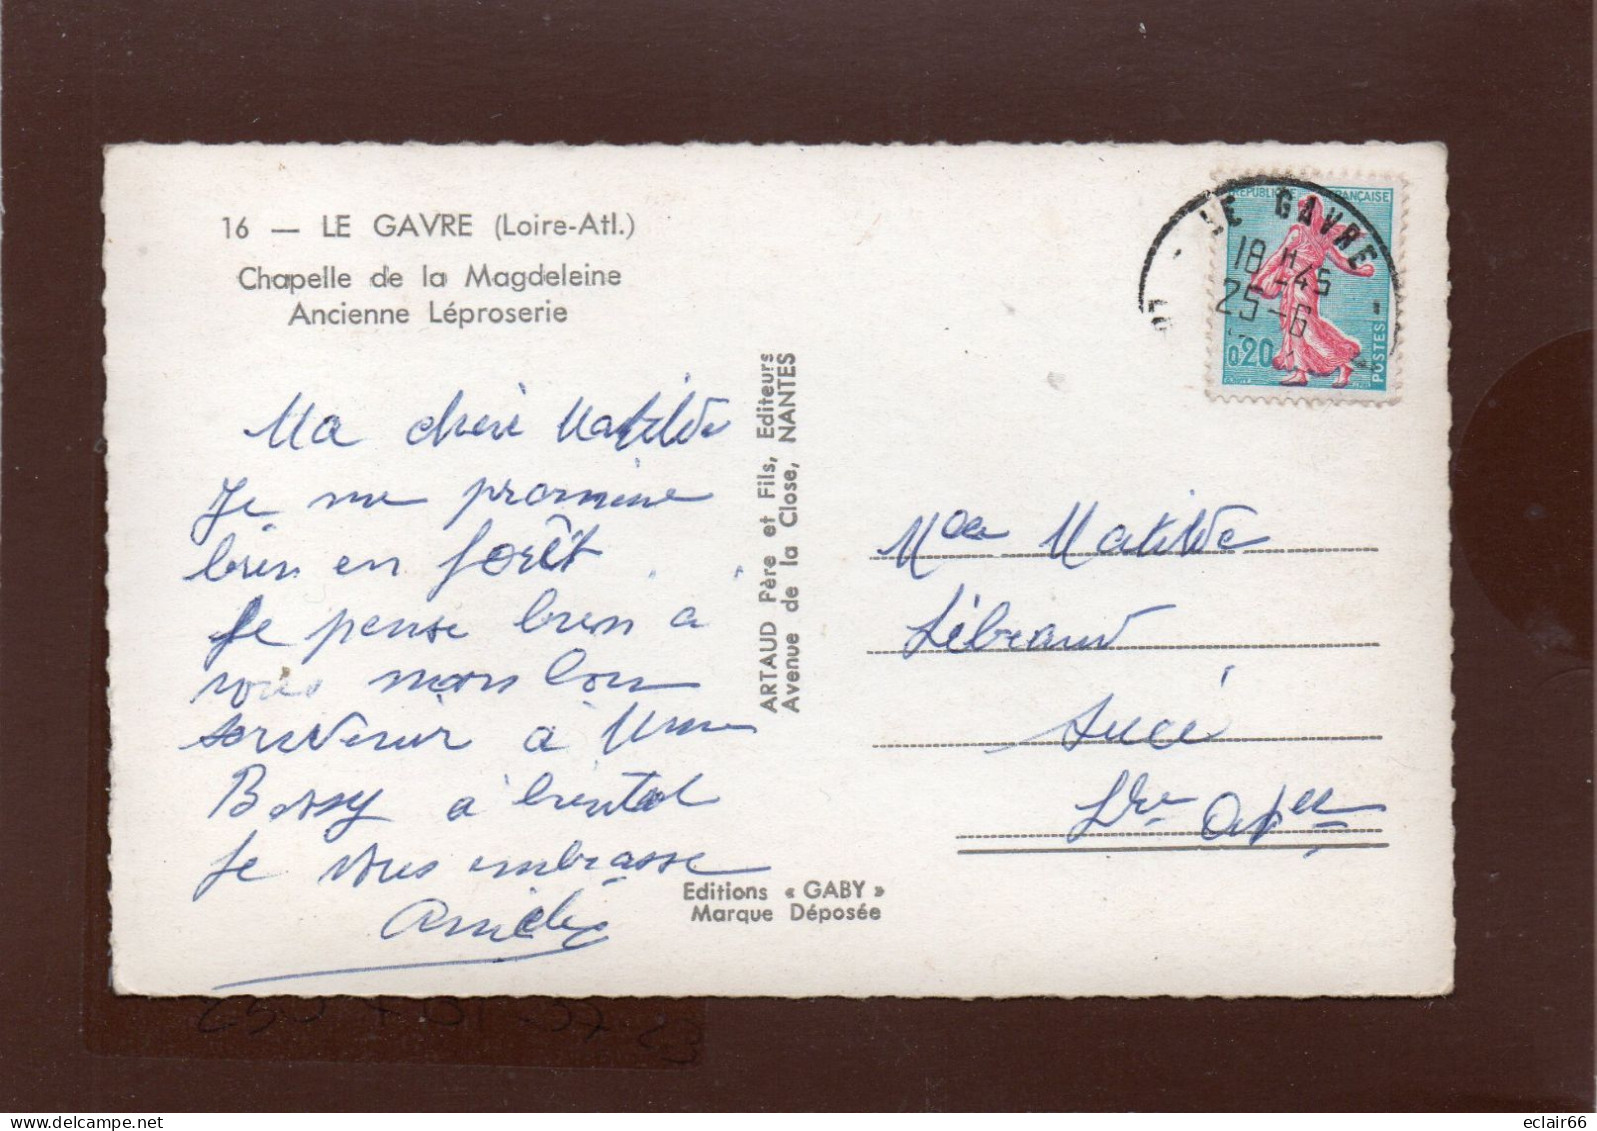 16 — LE GAVRE (Loire-Atl.)
Chapelle de la Magdeleine
Ancienne Léproserie
Ma chère Matilde
Je me promène
bien en forêt
Je pense bien a
vous mon bon
souvenir à Mme
Bossy à bientot
Je vous embrasse
ARTAUD Père et Fils, Editeurs
Avenue de la Close, NANTES
Editions « GABY »
Marque Déposée
RÉPUBLIQUE FRANÇAISE
0,20
POSTES
LE GAVRE
18 H 45
25-6
Matilde
Lébraud
Sucé
Lre
eclair66